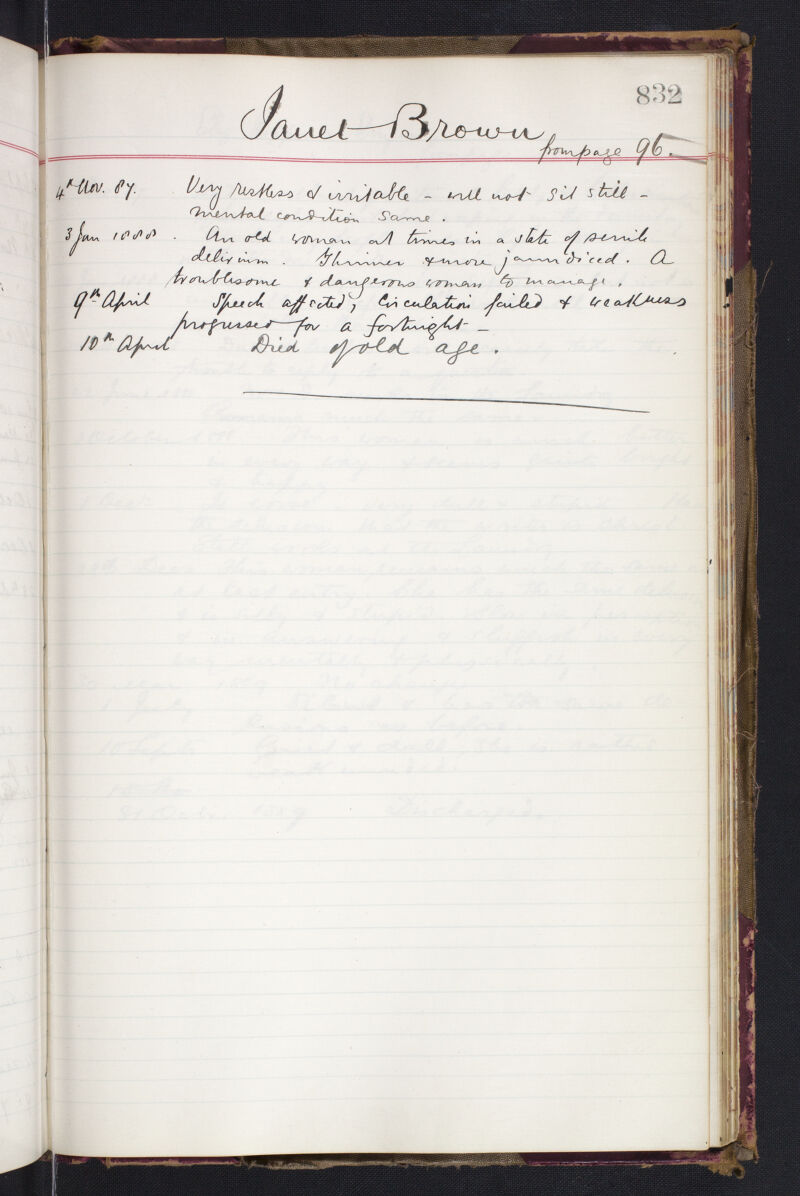 832
Janet Brown
from page 96.
4th Nov. 87. Very restless & irritable - will not sit still -
mental condition same.
3 Jan 1888. An old woman at times in a state of senile
delirium. Thinner & more jaundiced. A
troublesome & dangerous woman to manage.
9th April Speech affected; Circulation failed & weakness
progressed for a fortnight -
10th April Died of old age.